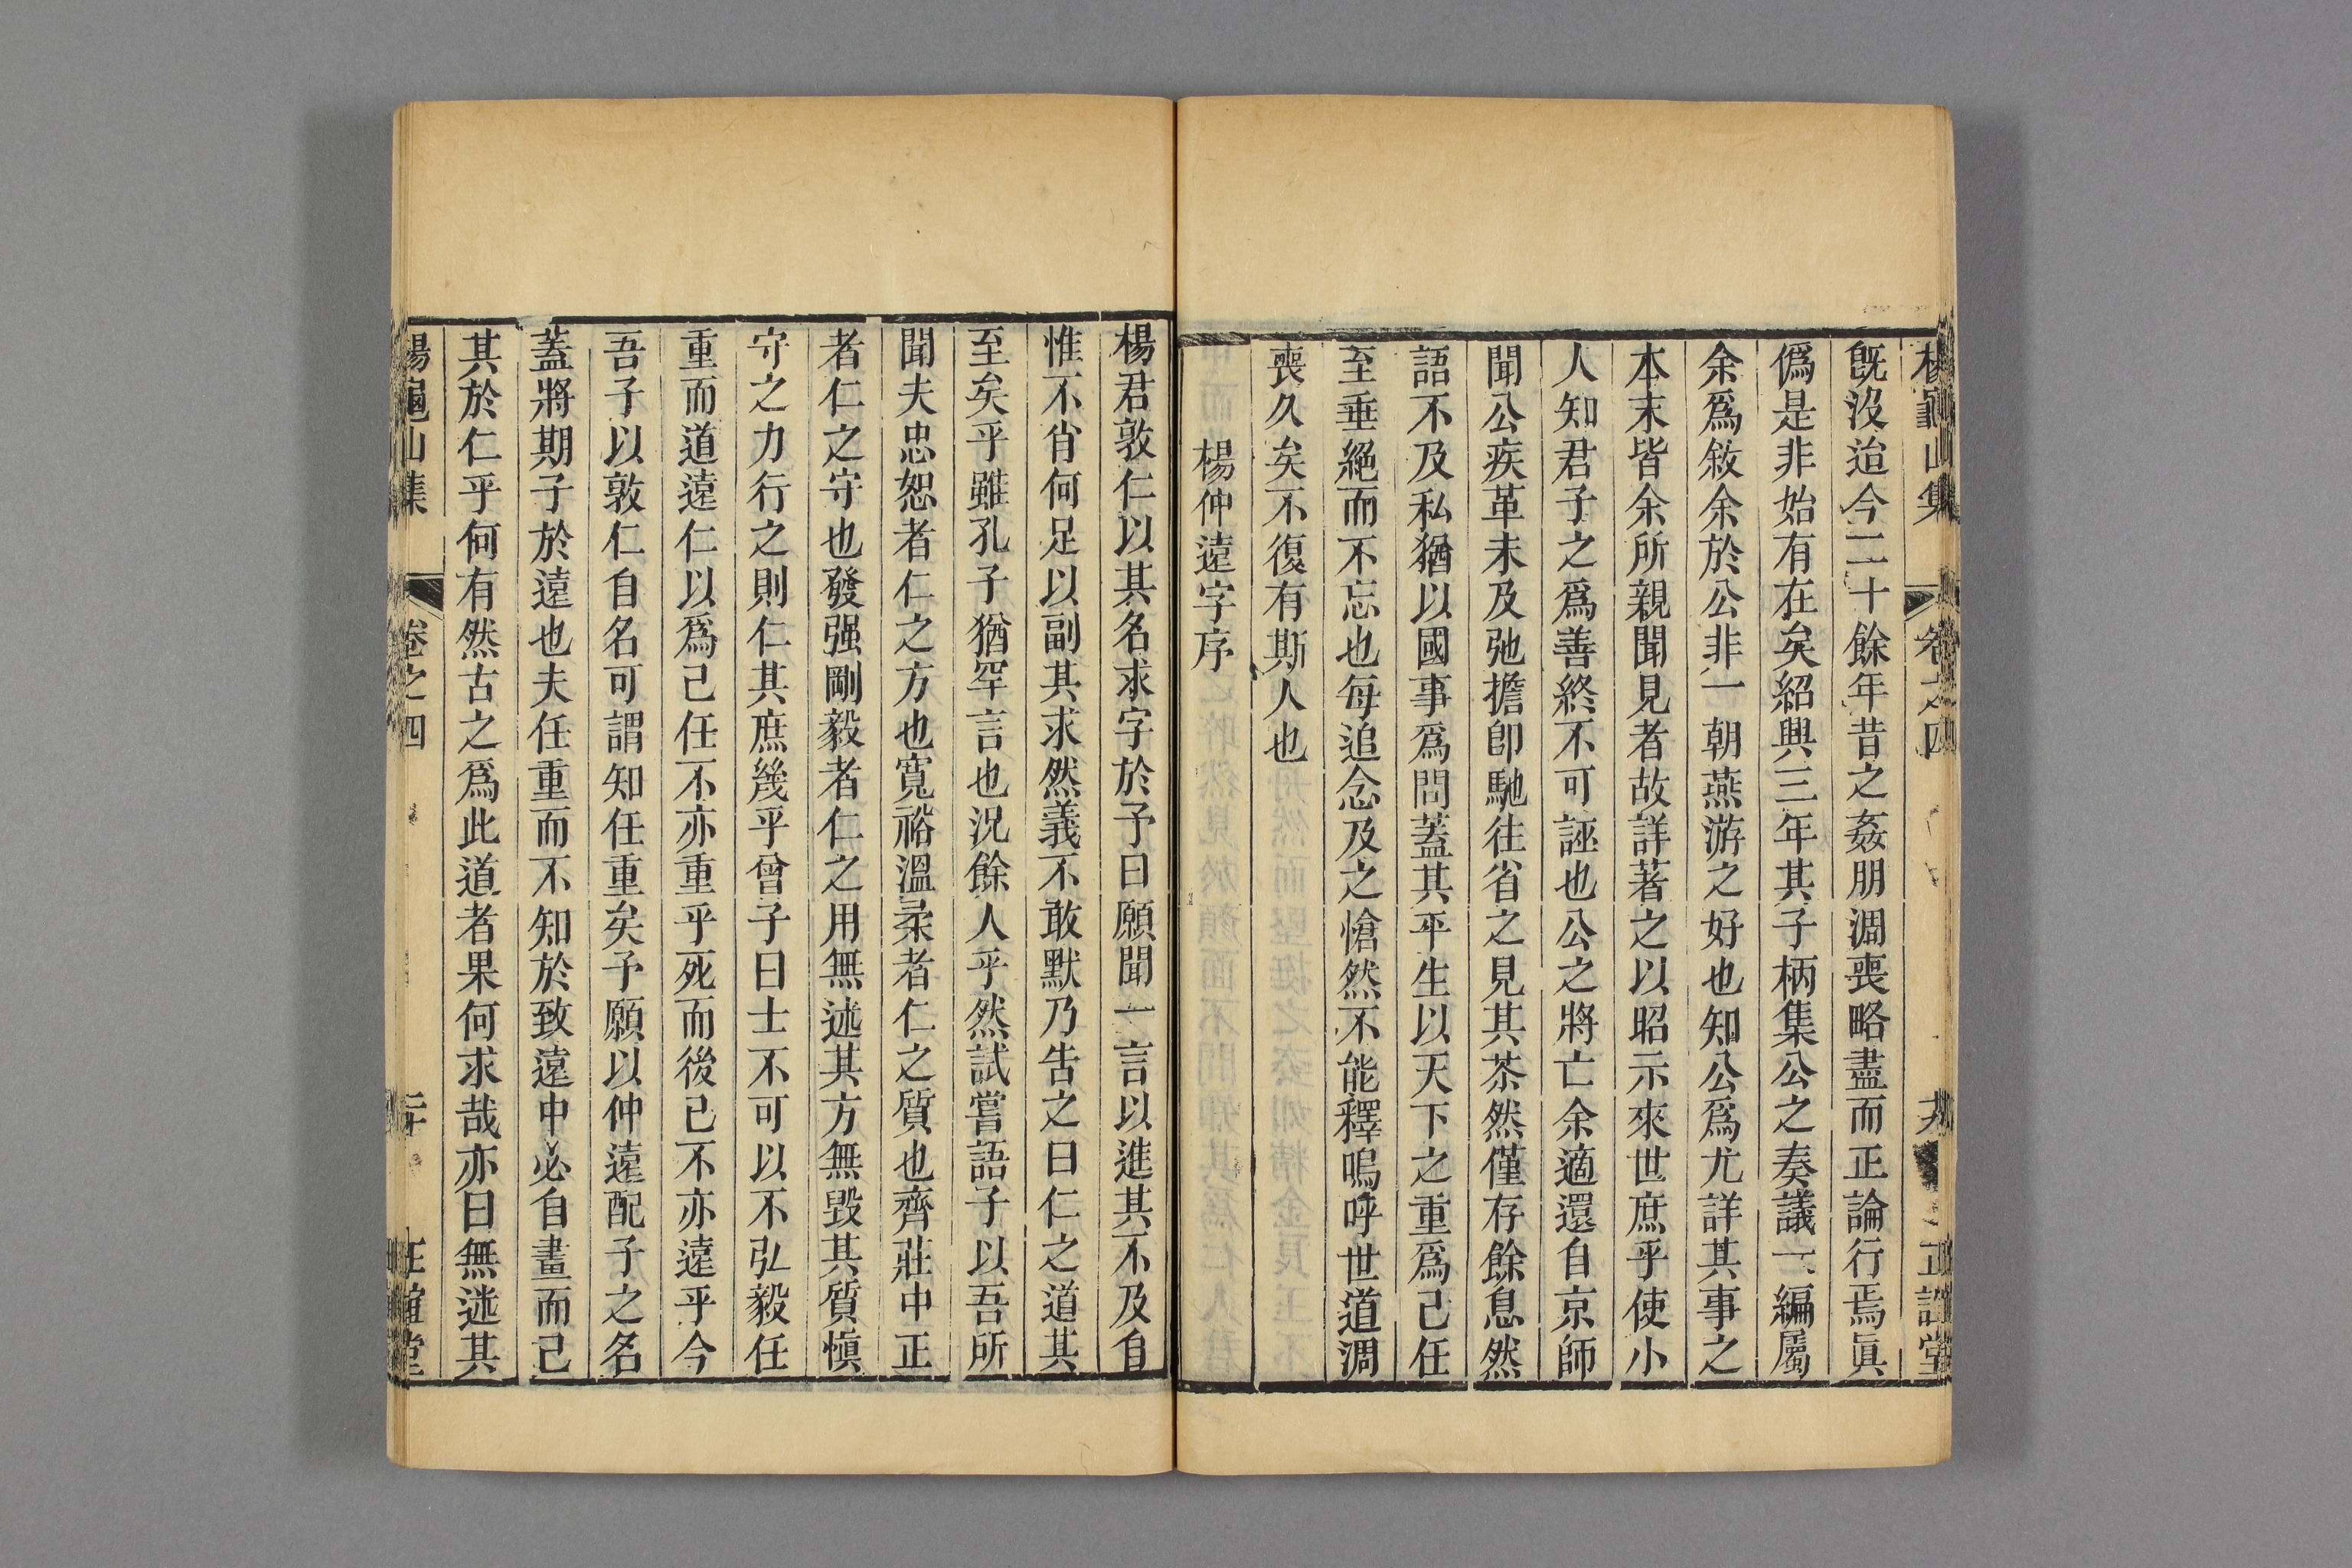 楊龜山集 卷之四 十九 正誼堂
旣沒迨今二十餘年昔之姦朋凋喪略盡而正論行焉眞
僞是非始有在矣紹興三年其子柄集公之奏議一編屬
余爲敘余於公非一朝燕游之好也知公爲尤詳其事之
本末皆余所親聞見者故詳著之以昭示來世庶乎使小
人知君子之爲善終不可誣也公之將亡余適還自京師
聞公疾革未及弛擔卽馳往省之見其茶然僅存餘息然
語不及私猶以國事爲問蓋其平生以天下之重爲己任
至垂絕而不忘也每追念及之愴然不能釋嗚呼世道凋
喪久矣不復有斯人也
楊仲遠字序
楊君敦仁以其名求字於予曰願聞一言以進其不及自
惟不肖何足以副其求然義不敢默乃告之曰仁之道其
至矣乎雖孔子猶罕言也況餘人乎然試嘗語子以吾所
聞夫忠恕者仁之方也寬裕溫柔者仁之質也齊莊中正
者仁之守也發强剛毅者仁之用無迷其方無毀其質愼
守之力行之則仁其庶幾乎曾子曰士不可以不弘毅任
重而道遠仁以爲己任不亦重乎死而後已不亦遠乎今
吾子以敦仁自名可謂知任重矣予願以仲遠配子之名
蓋將期子於遠也夫任重而不知於致遠中必自畫而已
其於仁乎何有然古之爲此道者果何求哉亦曰無迷其
楊龜山集 卷之四 二十 正誼堂